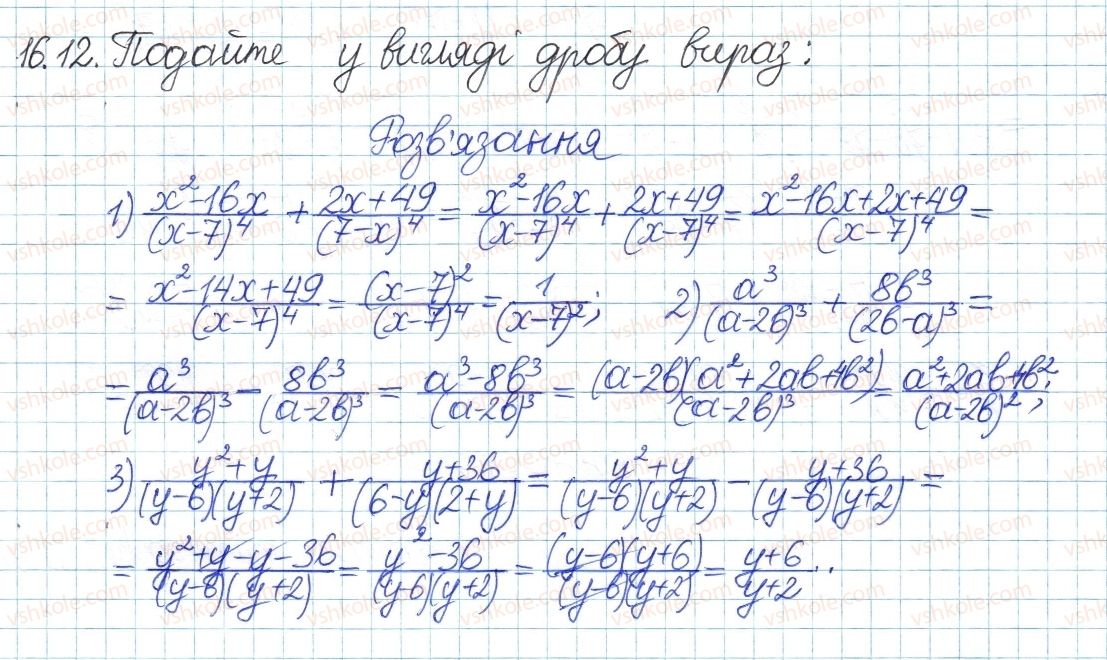 16.12. Подайте у вигляді дробу вираз:
Розв'язання
1) (x²-16x)/(x-7)⁴ + (2x+49)/(7-x)⁴ = (x²-16x)/(x-7)⁴ + (2x+49)/(x-7)⁴ = (x²-16x+2x+49)/(x-7)⁴ =
= (x²-14x+49)/(x-7)⁴ = (x-7)²/(x-7)⁴ = 1/(x-7)²; 2) a³/(a-2b)³ + 8b³/(2b-a)³ =
= a³/(a-2b)³ - 8b³/(a-2b)³ = (a³-8b³)/(a-2b)³ = (a-2b)(a²+2ab+4b²)/(a-2b)³ = (a²+2ab+4b²)/(a-2b)²;
3) (y²+y)/(y-6)(y+2) + (y+36)/(6-y)(2+y) = (y²+y)/(y-6)(y+2) - (y+36)/(y-6)(y+2) =
= (y²+y-y-36)/(y-6)(y+2) = (y²-36)/(y-6)(y+2) = (y-6)(y+6)/(y-6)(y+2) = (y+6)/(y+2).
vshkole.com